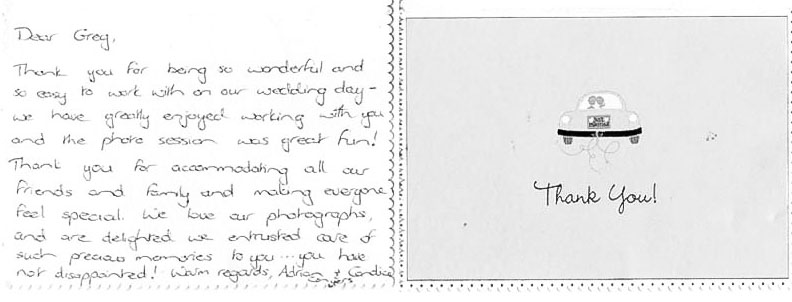 Dear Greg,
Thank you for being so wonderful and
so easy to work with on our wedding day -
we have greatly enjoyed working with you
and the photo session was great fun!
Thank you for accommodating all our
friends and family and making everyone
feel special. We love our photographs,
and are delighted we entrusted care of
such precious memories to you ... you have
not disappointed! Warm regards, Adrian & Candice
JUST MARRIED
Thank You!